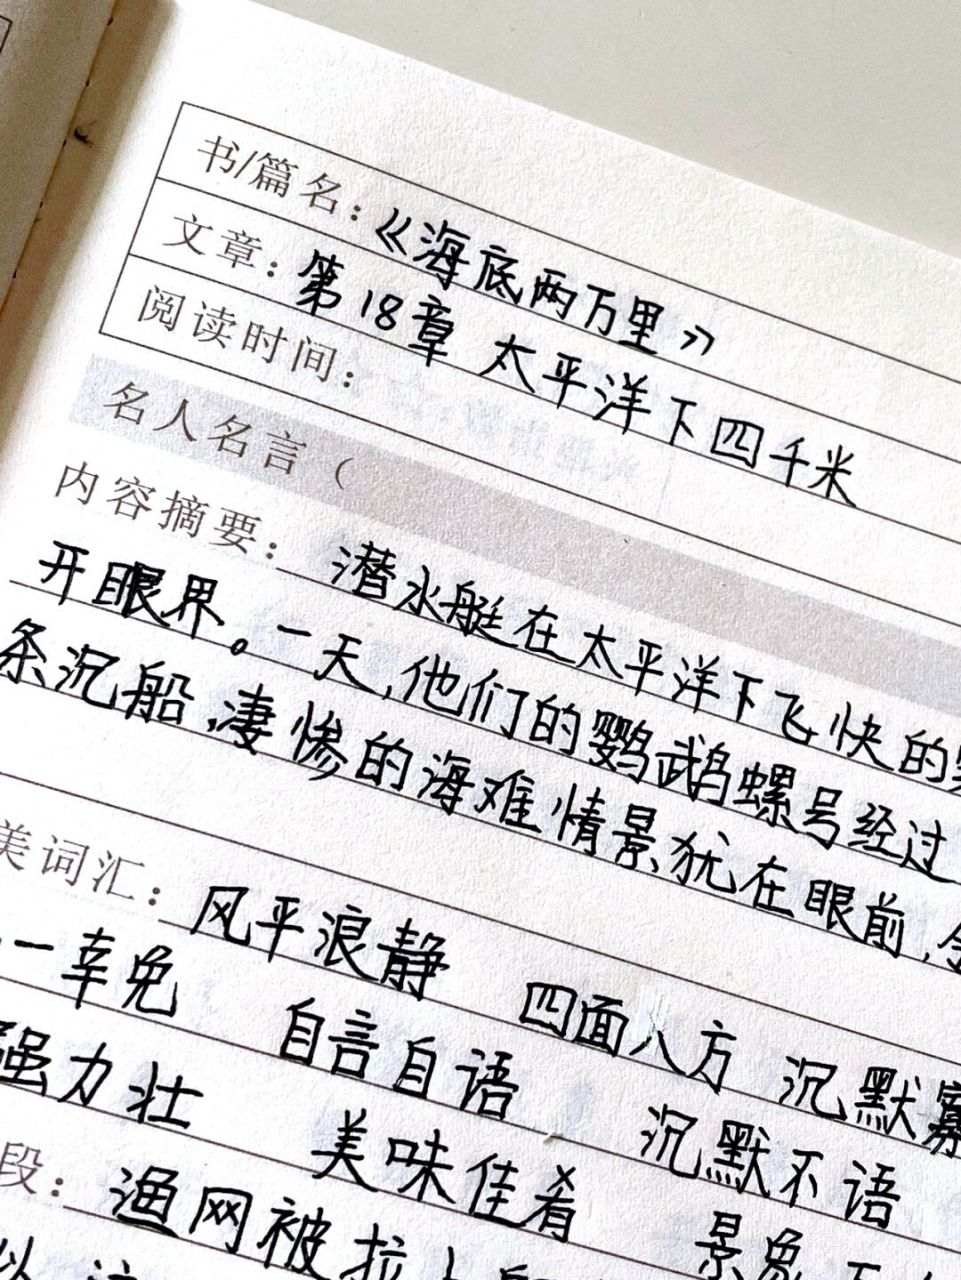 书/篇名：《海底两万里》
文章：第18章 太平洋下四千米
阅读时间：
名人名言（
内容摘要：潜水艇在太平洋下飞快的
开眼界。一天,他们的鹦鹉螺号经过
条沉船,凄惨的海难情景,犹在眼前,
美词汇：风平浪静 四面八方 沉默寡
一幸免 自言自语 沉默不语
强力壮 美味佳肴 景象
段：渔网被拉上